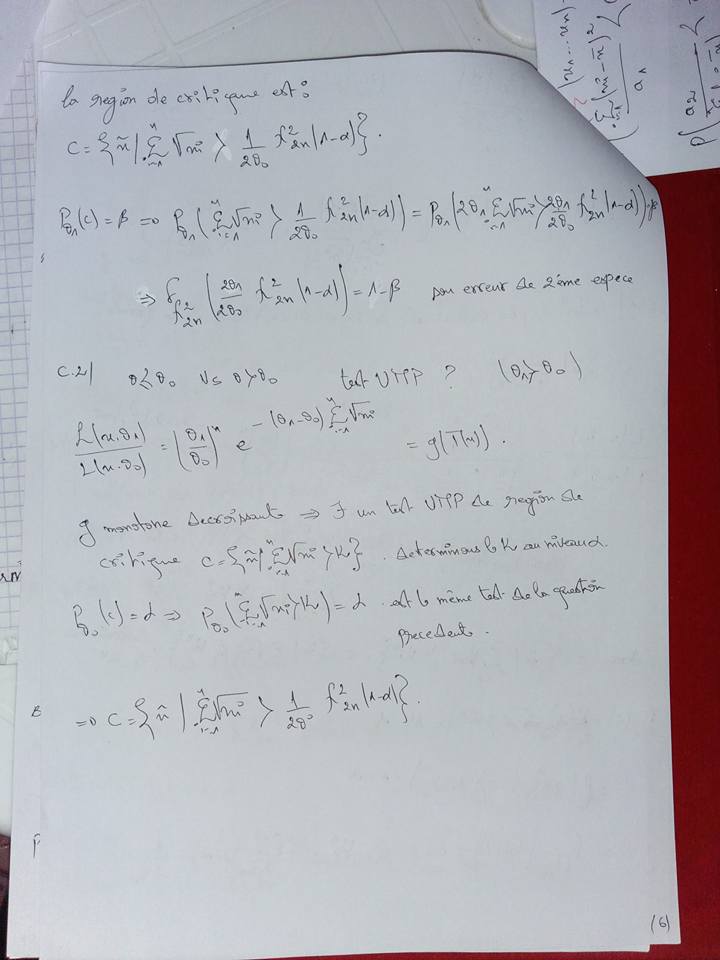 la region de critique est :
C = { x̃ | Σ_{i=1}^n √xi > 1/(2θ0) χ²_{2n}(1-α) } .
P_θ1(C) = β => P_θ1( Σ_{i=1}^n √xi > 1/(2θ0) χ²_{2n}(1-α) ) = P_θ1( 2θ1 Σ_{i=1}^n √xi > 2θ1/(2θ0) χ²_{2n}(1-α) ) = β
=> F_{χ²_{2n}} ( 2θ1/(2θ0) χ²_{2n}(1-α) ) = 1-β son erreur de 2ème espece
C.2| θ ≤ θ0 Vs θ > θ0 test UMP ? (θ1 > θ0)
L(x.θ1)/L(x.θ0) = (θ1/θ0)^n e^{-(θ1-θ0) Σ_{i=1}^n √xi} = g(T(x)) .
g monotone decroissante => ∃ un test UMP de region de
critique C = { x̃ | Σ_{i=1}^n √xi > K } . determinons le K au niveau α.
P_θ0(C) = α => P_θ0( Σ_{i=1}^n √xi > K ) = α est le même test de la question
precedent .
=> C = { x̃ | Σ_{i=1}^n √xi > 1/(2θ0) χ²_{2n}(1-α) } .
(6)
(x1 ... xn)
Σ (xi - x̄)²
a1
P( a2